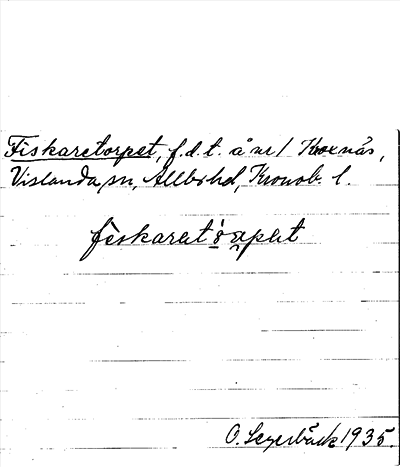 Fiskaretorpet, f.d.t. å nr 1 Hoxnäs,
Vislanda sn, Allbo hd, Kronob. l.
fiskaratórpat
O. Segerbäck 1935.